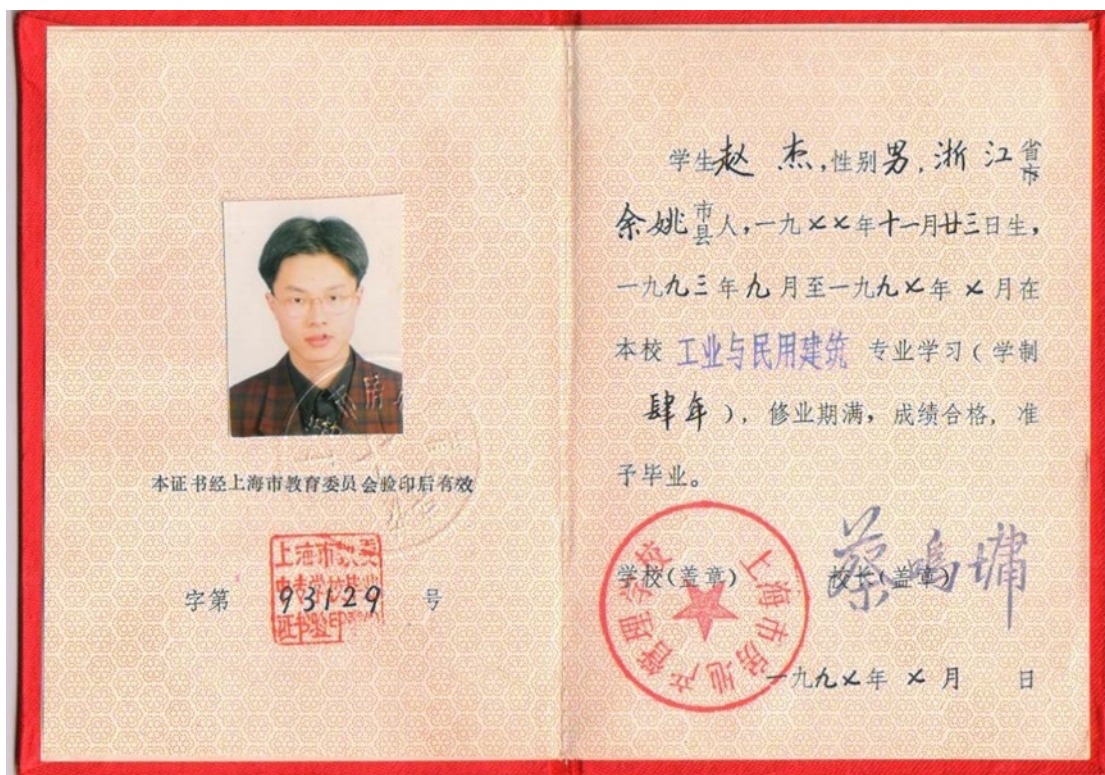 本证书经上海市教育委员会验印后有效
上海市教委
中专学校毕业
证书验印
字第 93129 号
学生赵 杰,性别男,浙江省市
余姚市县人,一九七七年十一月廿三日生,
一九九三年九月至一九九七年七月在
本校 工业与民用建筑 专业学习(学制
肆年),修业期满,成绩合格,准
予毕业。
学校(盖章) 校长(盖章)
上海市房地产管理学校
蔡鸣墉
一九九七年七月 日